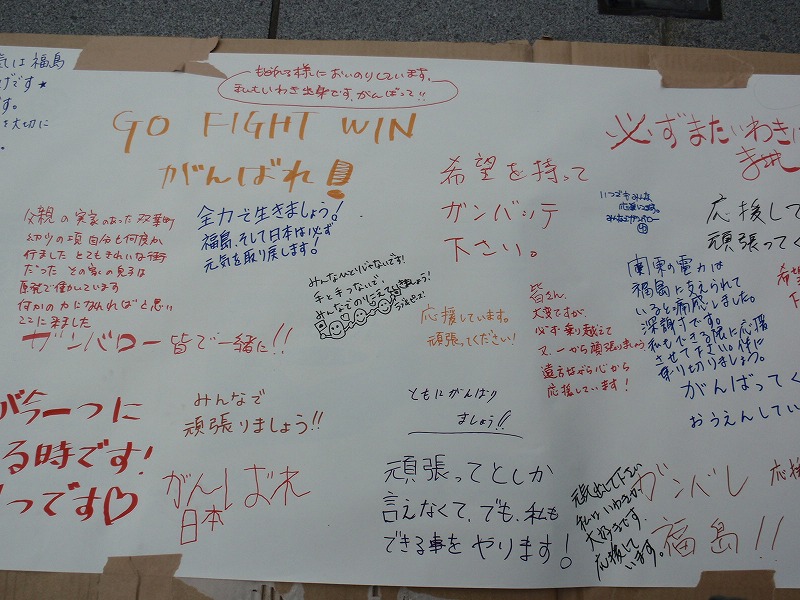 気は福島
げです★
です。
を大切に
もうれる様においのりしています。
私もいわき出身です、がんばって!!
GO FIGHT WIN
がんばれ!
必ずまたいわきに
希望を持って
ガンバッテ
下さい。
いつでもみんな
応援してます。
みんなでガンバロー
応援して
頑張ってく
父親の実家のあった双葉町
幼少の頃自分も何度か
行ました とてもきれいな街
だった その家の兄子は
原発で働しています
何かの力になれればと思い
ここに来ました
ガンバロー皆で一緒に!!
全力で生きましょう!
福島、そして日本は必ず
元気を取り戻します!
みんなひとりじゃないです!
手と手つないで、
応援しています。
頑張ってください!
皆さん、
大変ですが、
必ず乗り越えて
又、一から頑張りましょう
遠方ながら心から
応援しています!
関東の電力は
福島に支えられて
いると痛感しました。
深謝です。
私もできる限に応援
させて下さい。一件に
乗り切りましょう。
がんばってく
おうえんしてい
が今一つに
る時です!
つです♡
みんなで
頑張りましょう!!
がんばれ
日本
ともにがんばり
ましょう!!
頑張ってとしか
言えなくて、でも、私も
できる事をやります!
元気出して下さい
私はいわきが、
大好きです。
応援して
います。
ガンバレ
福島!!
応援